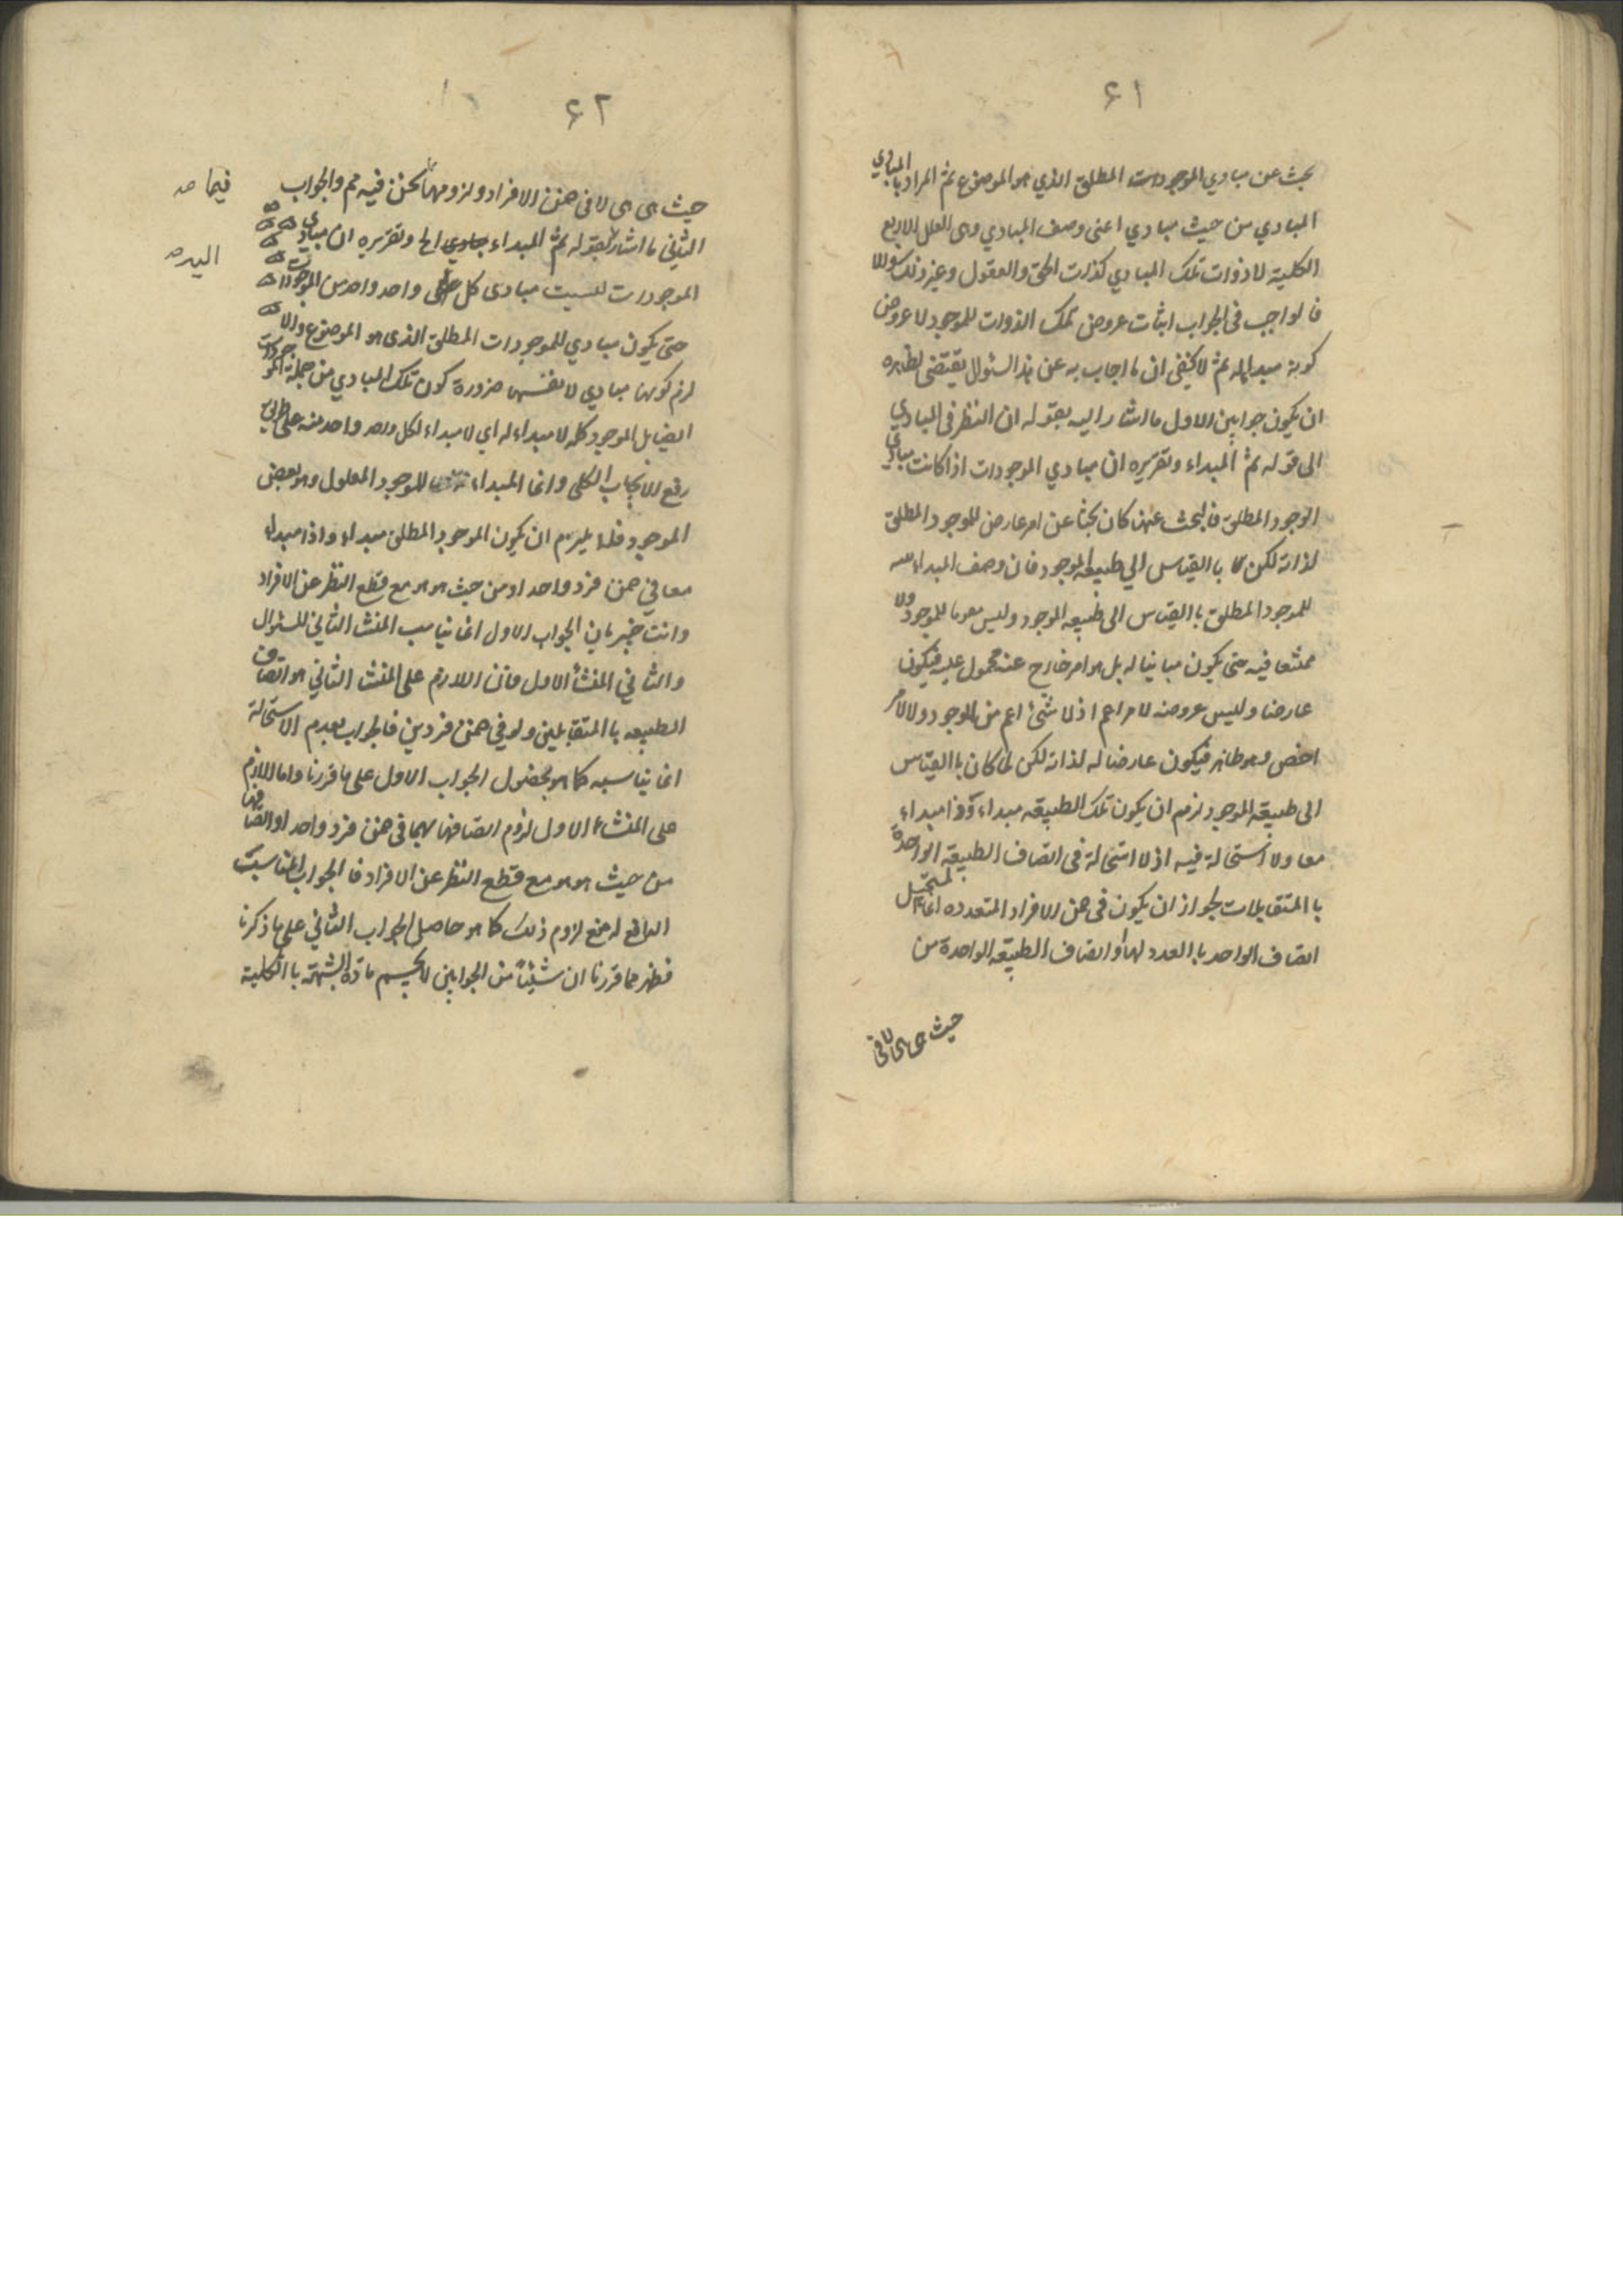 ٤١
بحث عن مبادي الموجودات المطلق الذي هو الموضوع ثم المراد بالمبادي
المبادي من حيث مبادي اعنى وصف المبادي وهى العلل الاربع
الكلية لا ذوات تلك المبادي كذات الحق والعقول وغير ذلك والا
فالواجب فى الجواب اثبات عروض تلك الذوات للموجود لا عروض
كونه مبدا له ثم لا يخفى ان ما اجاب به عن هذا السئوال يقتضى بظاهره
ان يكون جوابين الاول ما اشار اليه بقوله ان النظر فى المبادي
الى قوله ثم المبداء وتقريره ان مبادي الموجودات اذا كانت مبادي
الوجود المطلق فالبحث عنها كان بحثا عن امر عارض للوجود المطلق
لذاته لكن لا باالقياس الي طبيعة الموجود فان وصف المبداء
للموجود المطلق باالقياس الى طبيعه الموجود وليس مقوما للموجود ولا
ممتنعا فيه حتى يكون مباينا له بل هو امر خارج عنه محمول عليه فيكون
عارضا وليس عروضه لامر اعم اذ لا شئ اعم من الموجود ولا لامر
اخص وهو ظاهر فيكون عارضا له لذاته لكن لما كان باالقياس
الى طبيعة الموجود لزم ان يكون تلك الطبيعه مبداء وذا مبداء
معا ولا استحالة فيه اذ لا استحالة فى اتصاف الطبيعة الواحدة
باالمتقابلات لجواز ان يكون فى ضمن الافراد المتعدده انما المستحيل
اتصاف الواحد باالعدد لها او اتصاف الطبيعه الواحدة من
حيث هى هى لا فى
٤٢
حيث هى هى لا فى ضمن الافراد ولزومها لما نحن فيه مم والجواب
فيما
الثاني ما اشار بقوله ثم المبداء الخ وتقريره ان مبادي
اليه
الموجودات ليست مبادى كل واحد واحد من الموجودات
حتى يكون مبادي للموجودات المطلق الذى هو الموضوع والا
لزم كونها مبادي لانفسها ضرورة كون تلك المبادي من جملة الموجودات
ايضا بل الموجود كله لا مبداء له اي لا مبداء لكل واحد واحد منه على طريق
رفع الايجاب الكلى وانما المبداء للموجود المعلول وهو بعض
الموجود فلا يلزم ان يكون الموجود المطلق مبداء وذا مبداء
معا في ضمن فرد واحد او من حيث هو هو مع قطع النظر عن الافراد
وانت خبير بان الجواب الاول انما يناسب المنشا الثاني للسئوال
والثاني المنشأ الاول فان اللازم على المنشا الثاني هو اتصاف
الطبيعه باالمتقابلين ولو في ضمن فردين فالجواب بعدم الاستحالة
انما يناسبه كما هو محصول الجواب الاول على ما قررنا واما اللازم
على المنشاء الاول لزوم اتصافها بهما فى ضمن فرد واحد او اتصافها
من حيث هو هو مع قطع النظر عن الافراد فا الجواب المناسب
الدافع له منع لزوم ذلك كما هو حاصل الجواب الثاني على ما ذكرنا
فظهر مما قررنا ان شيئا من الجوابين لا يحسم مادة الشبهة باالكلية